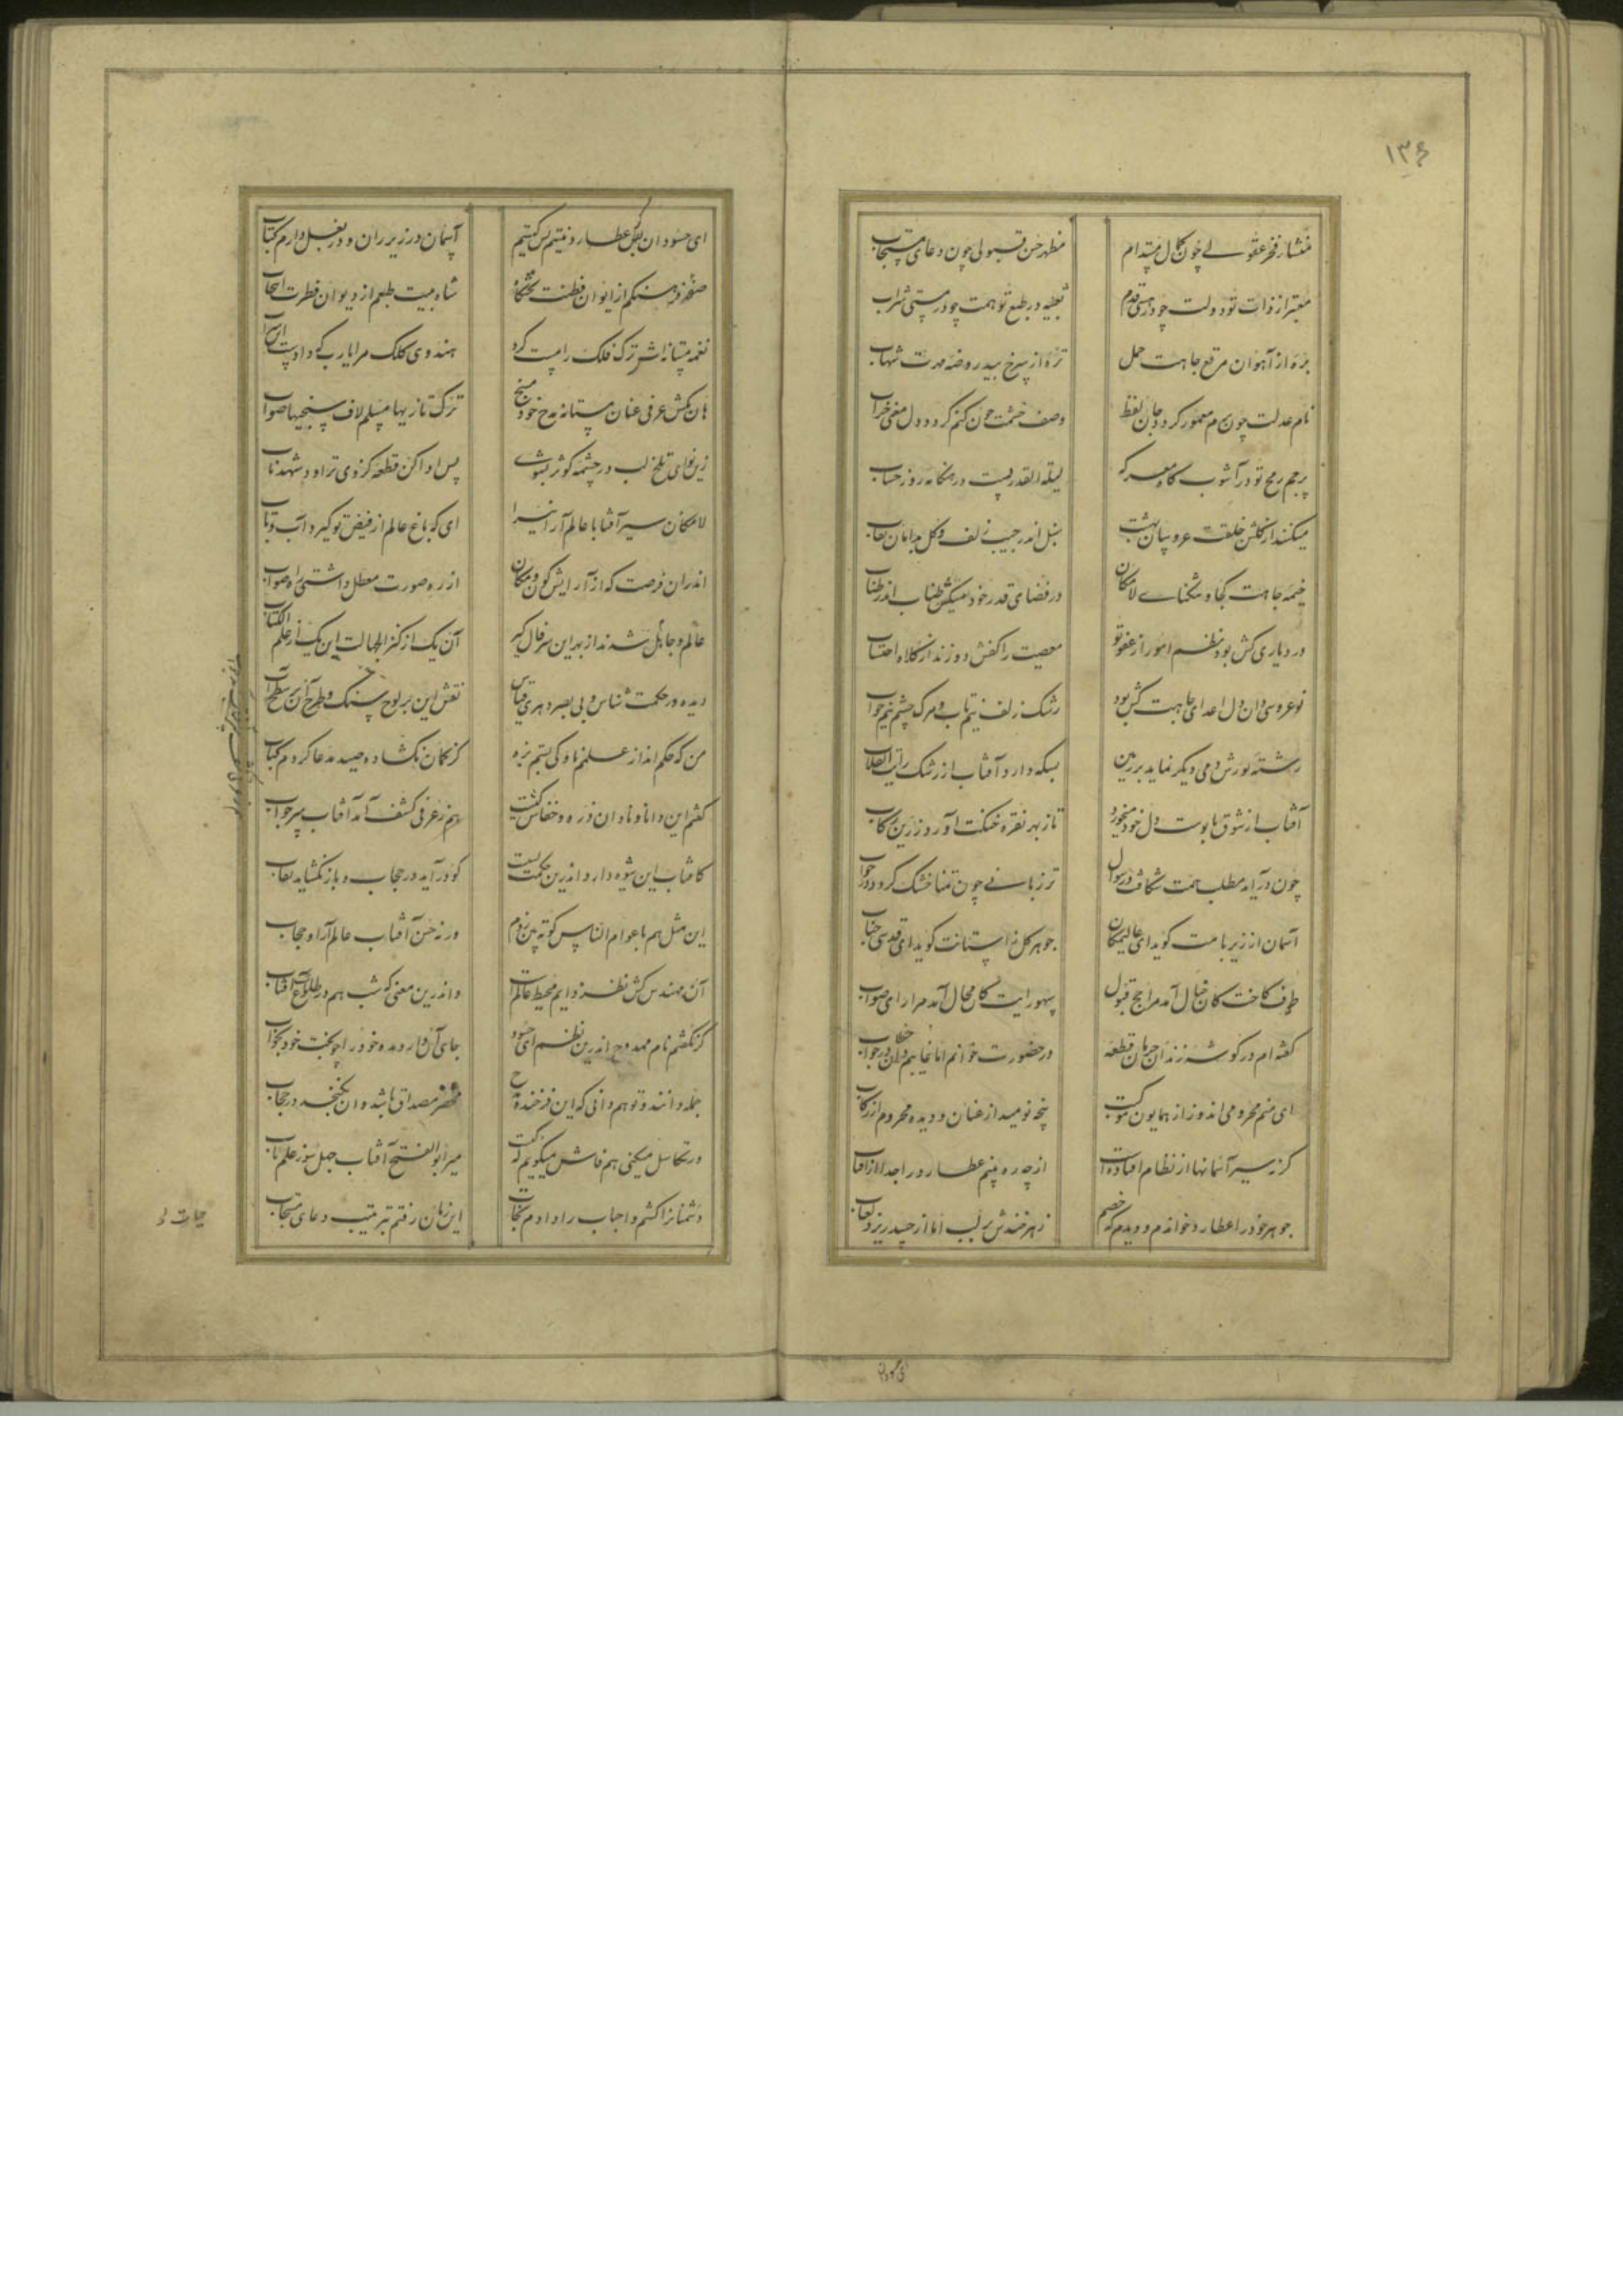 ۱۳۶
منشاء فخر عقولی چون کمال مستدام
مظهر حسن قبولی چون دعای مستجاب
معتبر از ذات تو دولت چو در هستی قدم
تعبیه در طبع تو همت چو در مستی شراب
بره از آهوان مرتع جاهت حمل
تره از چرخ بید روضه مهرت شهاب
نام عدلت چون برم معمور گردد جان لفظ
وصف خشمت چون کنم گردد دل معنی خراب
پرچم رمح تو در آشوب گاه معرکه
لیلة القدریست در هنگامه روز حساب
میکنند از گلشن خلقت عروسان بهشت
سنبل اندر جیب زلف و گل بدامان نقاب
خیمه جاهت کجا و تنگنای لامکان
در فضای قدر خود میکش طناب اندر طناب
در دیاری کش بود نظم امور از عفو تو
معصیت را کفش دوزند از کلاه احتساب
نوعروسی دان دل اعدای جاهت کش بود
رشک زلف نیم تاب و مرگ چشم نیم خواب
رشته نورش دمی دیگر نماید بر زمین
بسکه دارد آفتاب از رشک رایت انقلاب
آفتاب از شوق پابوست دل خود میخورد
تا ز بهر نقره خنگت آورد زرین رکاب
چون در آید مطلب همت شکافت در سوال
تر زبانی چون تمنا خشک گردد در جواب
آسمان از زیر بامت گوید ای عالیمکان
جوهر کل ز آستانت گوید ای قدسی جناب
طوف کاخت کان خیال آمد مرا حج قبول
سهو رایت کان محال آمد مرا رای صواب
گفته ام در گوشه زندان حرمان قطعه
در حضورت خوانم اما غایبم دان در خطاب
ای منم محرومی اندوز از همایون موکبت
پنجه نومید از عنان و دیده محروم از رکاب
گر نه سیر آسمانها از نظام افتاده است
از چه ره بینم عطارد را جدا از آفتاب
جوهر خود را عطارد خواندم و دیدم که خصم
زهر خندش بر لب اما از حسد ریزد لعاب
ای حسود
ای حسود ان بگل عطارد نیستم پس کیستم
آسمان در زیر ران و در بغل دارم کتاب
صفحه فرهنگم از ایوان فطنت
شاه بیت طبعم از دیوان فطرت انتخاب
نغمه مستانه اش ترک فلک را مست کرد
هندوی کلک مرا یارب که داد
هان بکش عرفی عنان مستانه مدح خود مسنج
ترک تازیها مسلم لاف سنجیها صواب
زین نوای تلخ لب در چشمه کوثر بشوی
پس ادا کن قطعه کز وی تراود شهد ناب
لامکان سیر آفتابا عالم آرا نیرا
ای که باغ عالم از فیض تو گیرد آب و تاب
اندران فرصت که از آرایش کون و مکان
از ره صورت معطل داشتی راه صواب
عالم و جاهل شدند از بهر این سر فال گیر
آن یک از کنز الجهالت این یک از علم الکتاب
دیده ور حکمت شناس و بی بصر دهری قیاس
نقش این بر لوح سنگ و طرح آن بر سطح آب
من که حکم انداز علمم ناوکی بستم بزه
کز کمان نگشاده صید مدعا کردم کباب
گفتم این دانا و نادان ذره و خفاش گشت
هم ز عرفی کشف آمد آفتاب سیر جواب
کافتاب این شیوه دارد اندرین حکمت نیست
کو در آید در حجاب و باز نگشاید نقاب
این مثل هم با عوام الناس کوته بین زدم
ورنه حسن آفتاب عالم آرا و حجاب
آن مهندس کش نظر دایم محیط عالم است
داند این معنی که شب هم در طلوع است آفتاب
گر نگفتم نام ممدوح اندرین نظم ای حسود
جای آن دارد مده خود را چو بخت خود بخواب
جمله دانند و تو هم دانی که این فرخنده مدح
منحصر مصداق باشد و ان نگنجد در حجاب
ور تکاسل میکنی هم فاش میگویم که کیست
میر ابوالفتح آفتاب جهل سوز علم تاب
دشمنانرا کشتم و احباب را دادم نجات
این زمان رفتم بترتیب دعای مستجاب
حیات او